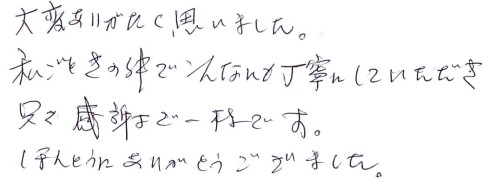 大変ありがたく思いました。
私ごときの体でこんなにも丁寧にしていただき
只々感謝で一杯です。
ほんとうにありがとうございました。